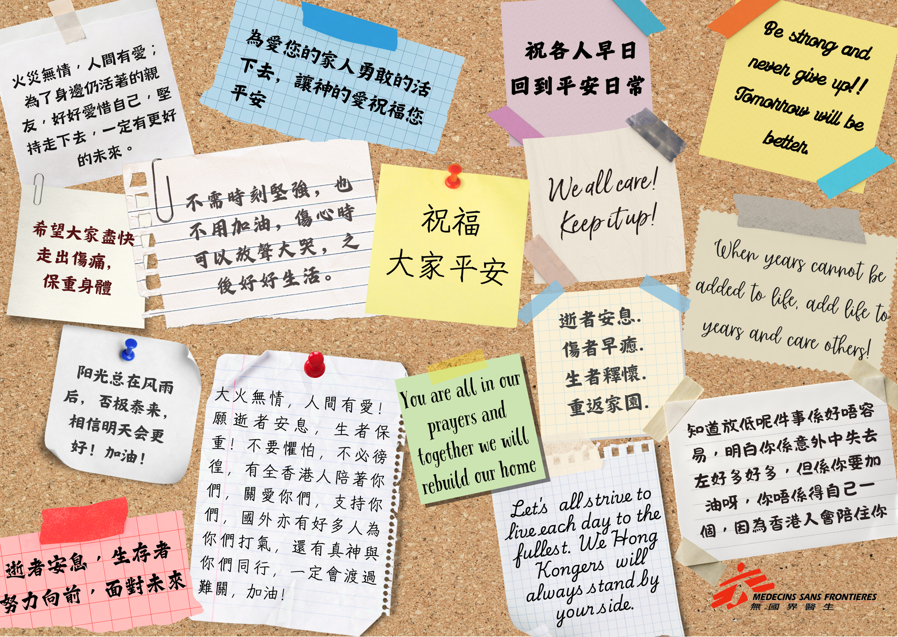 火災無情，人間有愛；
為了身邊仍活著的親
友，好好愛惜自己，堅
持走下去，一定有更好
的未來。
為愛您的家人勇敢的活
下去，讓神的愛祝福您
平安
祝各人早日
回到平安日常
Be strong and
never give up!!
Tomorrow will be
better.
希望大家盡快
走出傷痛，
保重身體
不需時刻堅強，也
不用加油，傷心時
可以放聲大哭，之
後好好生活。
祝福
大家平安
We all care!
Keep it up!
When years cannot be
added to life, add life to
years and care others!
阳光总在风雨
后，否极泰来，
相信明天会更
好！加油！
大火無情，人間有愛！
願逝者安息，生者保
重！不要懼怕，不必徬
徨，有全香港人陪著你
們，關愛你們，支持你
們，國外亦有好多人為
你們打氣，還有真神與
你們同行，一定會渡過
難關，加油！
You are all in our
prayers and
together we will
rebuild our home
逝者安息.
傷者早癒.
生者釋懷.
重返家園.
知道放低呢件事係好唔容
易，明白你係意外中失去
左好多好多，但係你要加
油呀，你唔係得自己一
個，因為香港人會陪住你
逝者安息，生存者
努力向前，面對未來
Let's all strive to
live each day to the
fullest. We Hong
Kongers will
always stand by
your side.
MEDECINS SANS FRONTIERES
無國界醫生